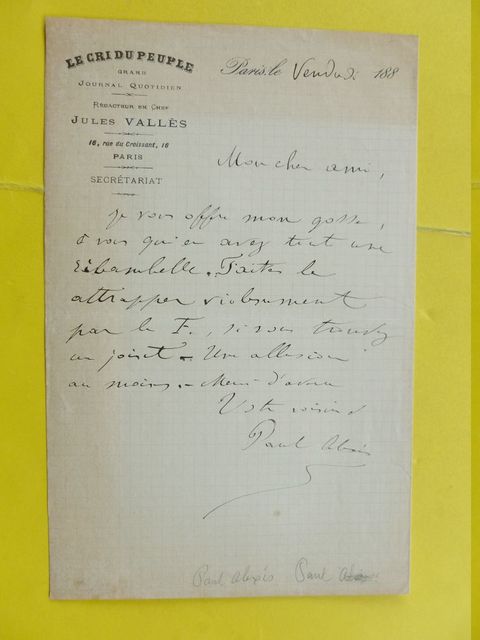 LE CRI DU PEUPLE
GRAND
JOURNAL QUOTIDIEN
RÉDACTEUR EN CHEF
JULES VALLÈS
16, rue du Croissant, 16
PARIS
SECRÉTARIAT
Paris, le Vendredi 188
Mon cher ami,
je vous offre mon gosse,
à vous qui en avez tout une
ribambelle. Faites le
attrapper violemment
par le F., si vous trouvez
un joint. Une allusion
au moins. - Merci d'avance
Votre voisin
Paul Alexis
Paul Alexis Paul